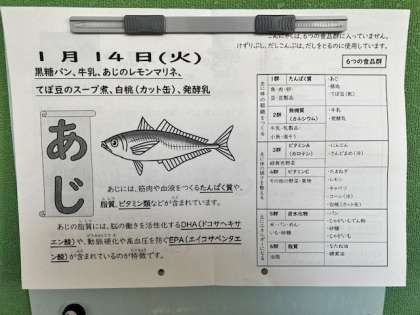 は、6つの食品群に入っていません。
けずりぶし、だしこんぶは、だしをとるのに使用しています。
1月14日(火)
黒糖パン、牛乳、あじのレモンマリネ、
てぼ豆のスープ煮、白桃(カット缶)、発酵乳
あじ
あじには、筋肉や血液をつくるたんぱく質や、
脂質、ビタミン類などが含まれています。
あじの脂質には、脳の働きを活性化するDHA(ドコサヘキサ
エン酸)や、動脈硬化や高血圧を防ぐEPA(エイコサペンタエ
ン酸)が含まれているのが特徴です。
6つの食品群
1群 たんぱく質
魚・肉・卵・
豆・豆製品
・あじ
・てぼ豆(乾)
2群 無機質
(カルシウム)
牛乳・乳製品・
小魚・海そう
・牛乳
・発酵乳
3群 ビタミンA
(カロテン)
緑黄色野菜
・にんじん
4群 ビタミンC
その他の野菜・果物
・たまねぎ
・レモン
・キャベツ
・コーン(冷)
・白桃(カット缶)
5群 炭水化物
米・パン・めん・
いも・砂糖
・パン
・じゃがいもでん粉
・砂糖
・じゃがいも
6群 脂質
油脂
・なたね油
・綿実油